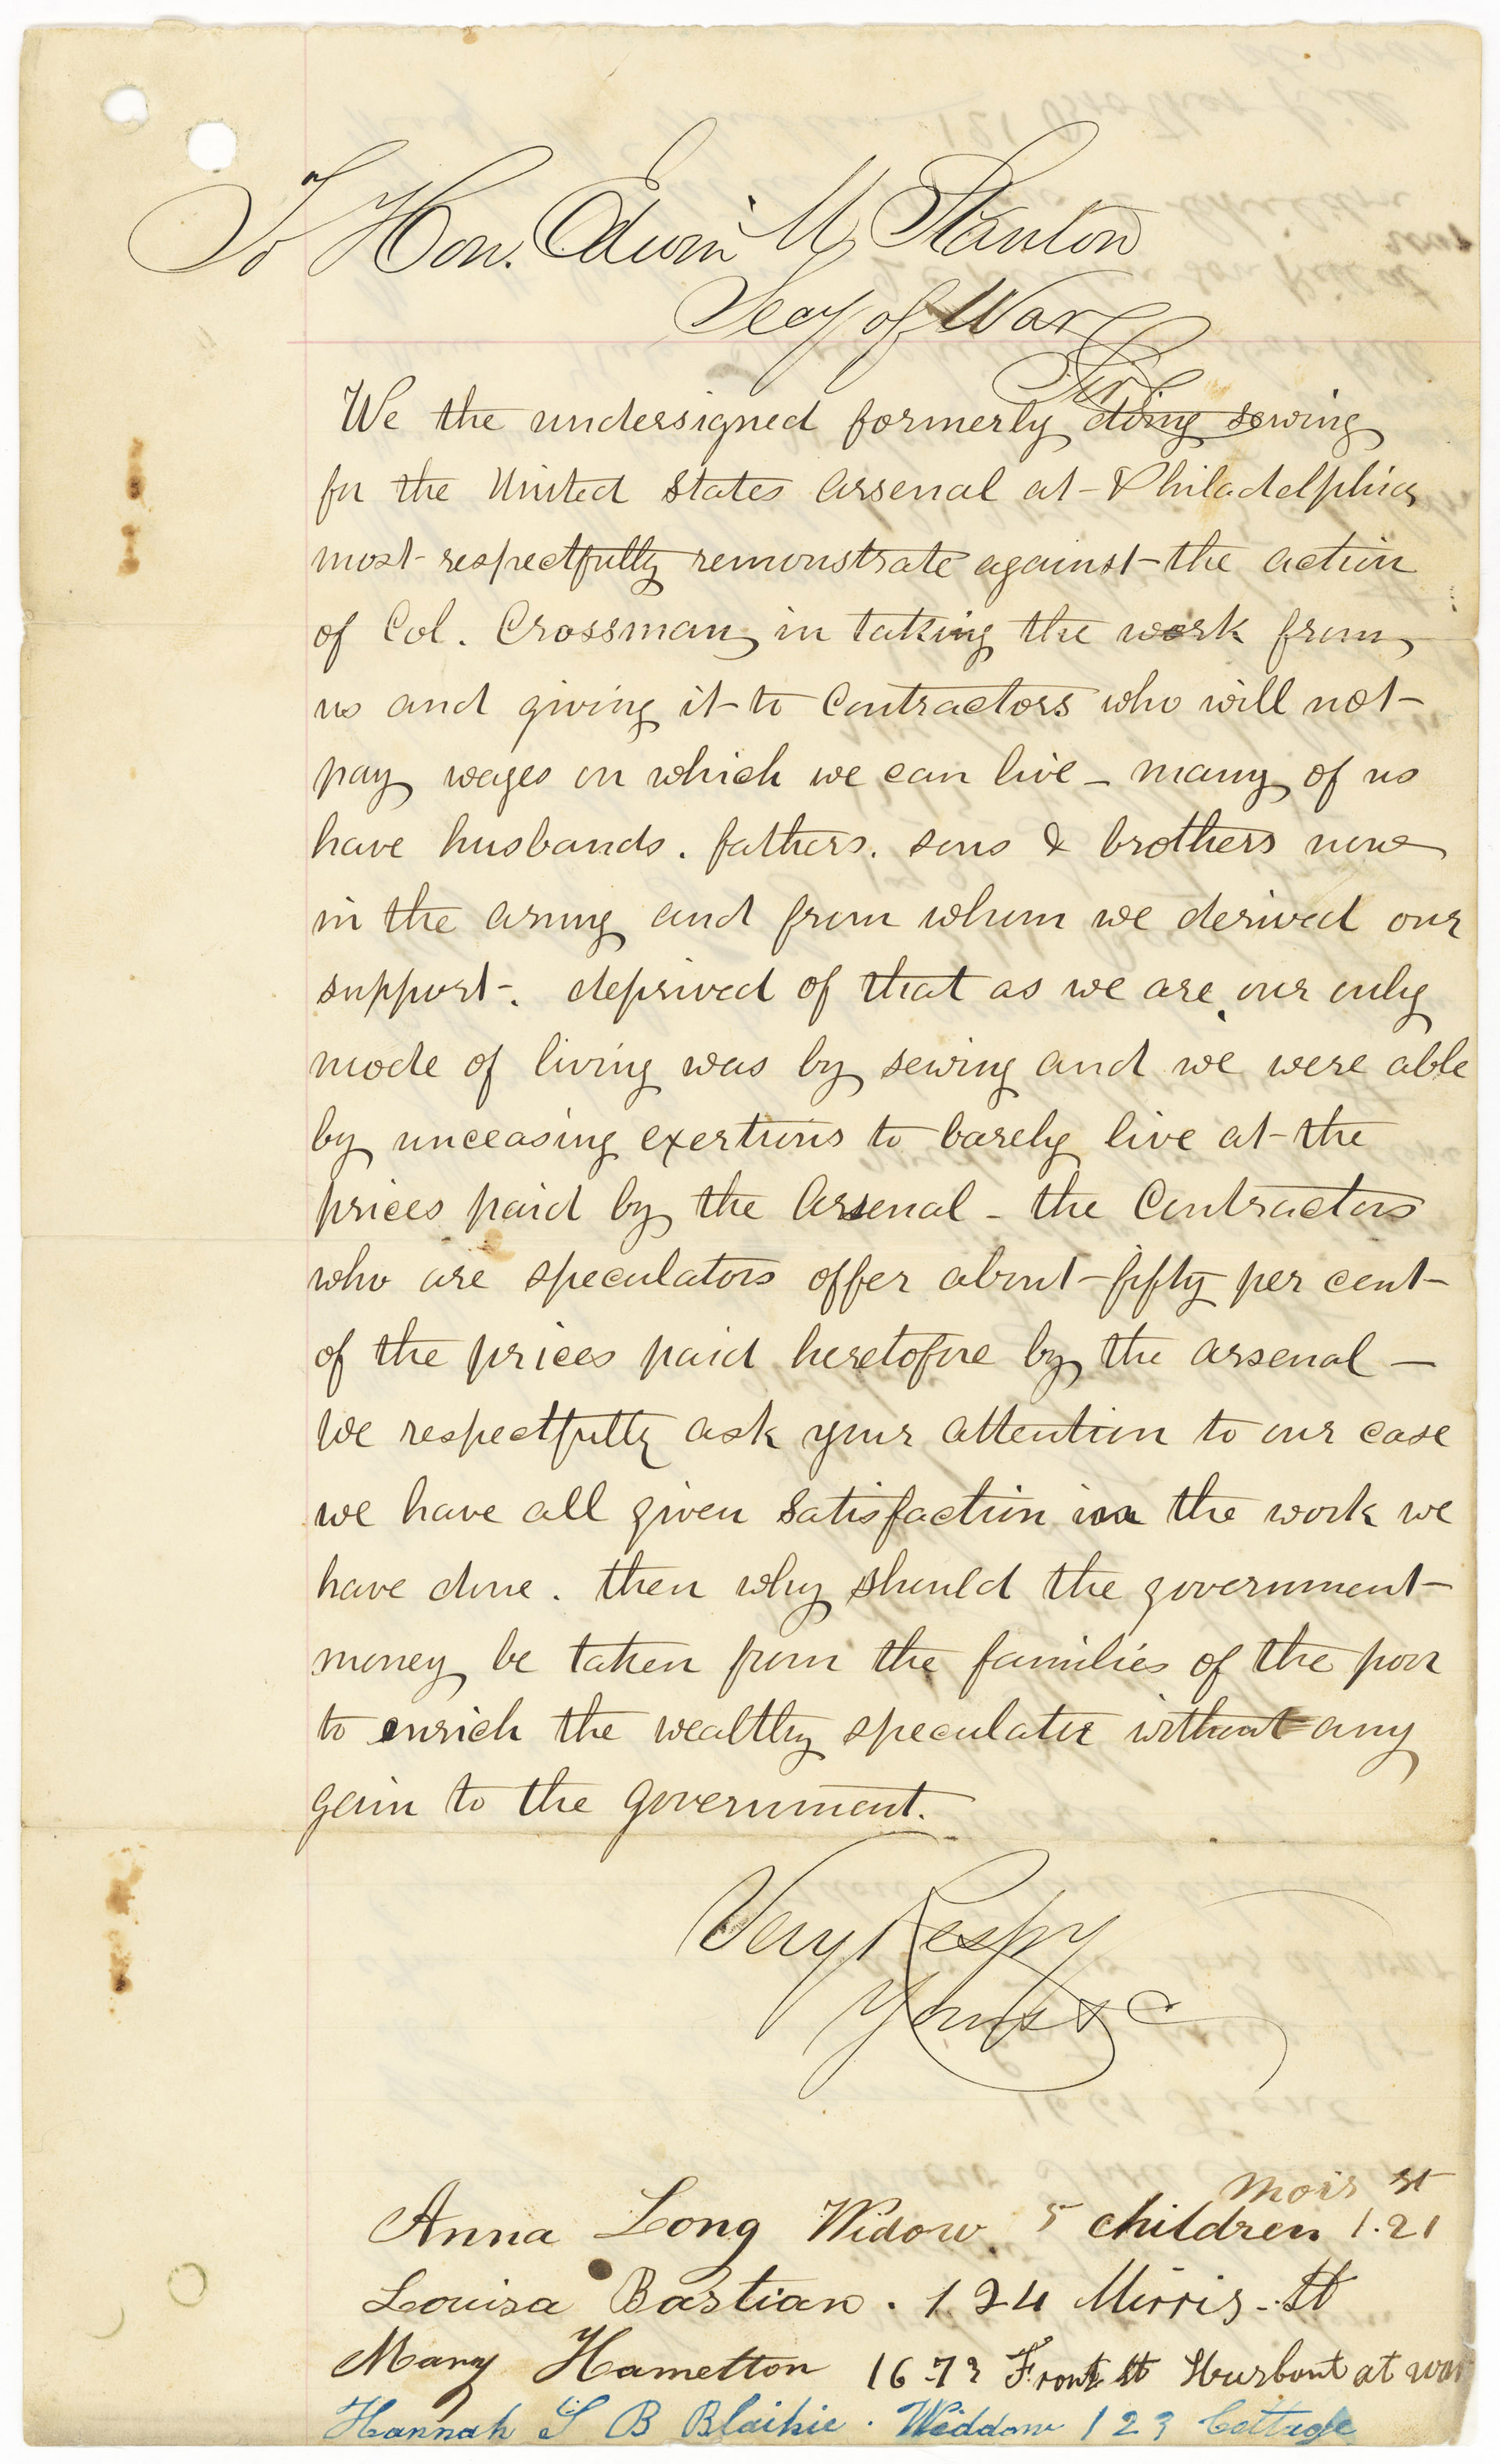 To Hon. Edwin M Stanton
Secy of War
Sir
We the undersigned formerly doing sewing
for the United States Arsenal at Philadelphia
most respectfully remonstrate against the action
of Col. Crossman, in taking the work from
us and giving it to Contractors who will not
pay wages on which we can live – many of us
have husbands. fathers. sons & brothers now
in the army and from whom we derived our
support. deprived of that as we are, our only
mode of living was by sewing and we were able
by unceasing exertions to barely live at the
prices paid by the Arsenal – the Contractors
who are speculators offer about fifty per cent
of the prices paid heretofore by the arsenal –
We respectfully ask your attention to our case
we have all given satisfaction in the work we
have done. then why should the government
money be taken from the families of the poor
to enrich the wealthy speculator without any
gain to the government.
Very Respy
Yours &c
Moris st
Anna Long Widow. 5 children 1.21
Louisa Bastian. 124 Mirris St
Mary Hamelton 1673 Front st Hursbont at war
Hannah S B Blaikie. Widdow 123 Cottage